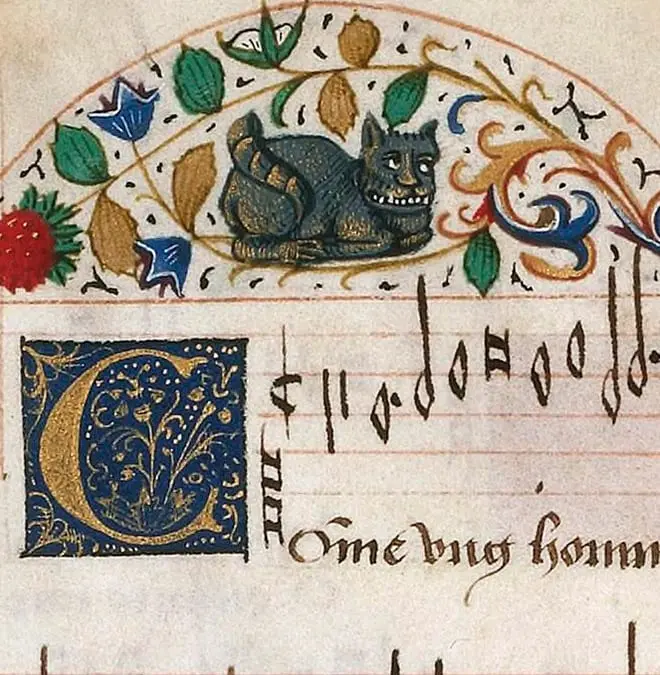 COm̄e vng homm